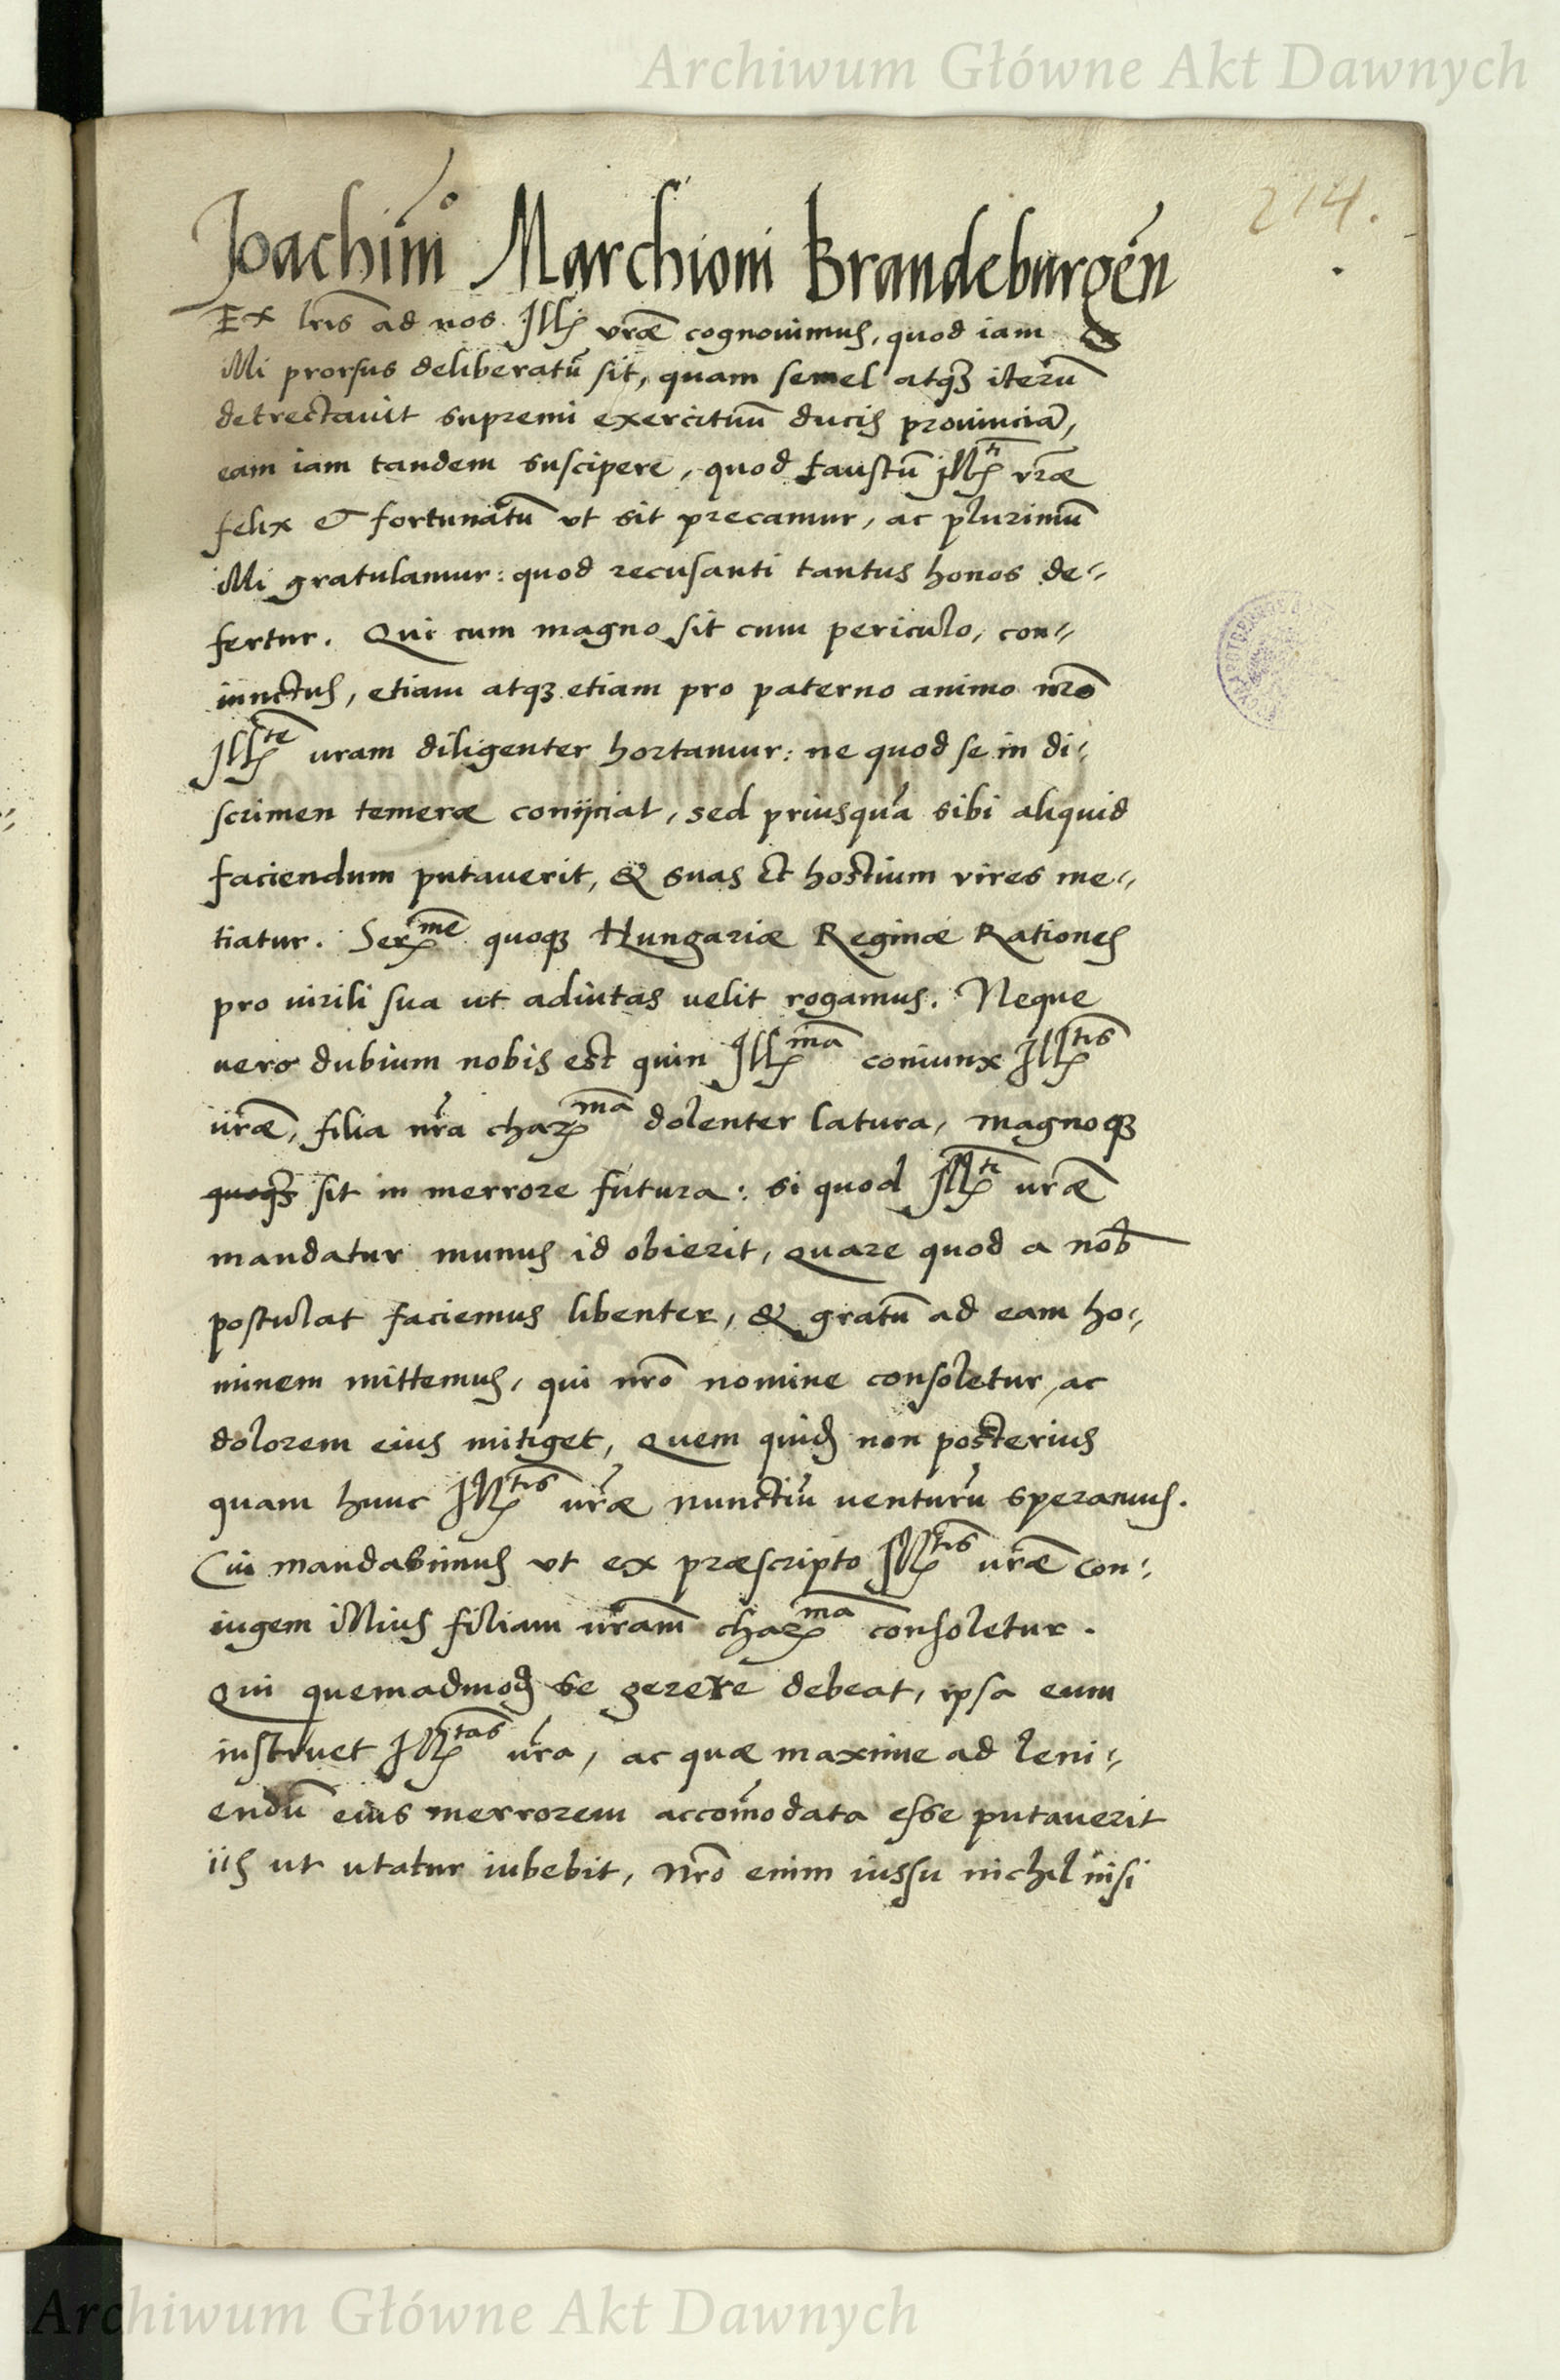 Archiwum Główne Akt Dawnych
214.
Joachimo Marchioni Brandeburgen̄
Ex lr̄is ad nos Ill. vr̄æ cognouimus, quod iam
illi prorsus deliberatū sit, quam semel atqȝ iterū
detrectauit supremi exercituū ducis prouinciā,
eam iam tandem suscipere, quod faustū Ill.ti vr̄æ
felix & fortunatū vt sit precamur, ac plurimū
illi gratulamur: quod recusanti tantus honos de=
fertur. Qui cum magno sit cum periculo, con=
iunctus, etiam atqȝ etiam pro paterno animo nr̄o
Ill.te uram diligenter hortamur: ne quod se in di=
scrimen temeræ conijciat, sed priusquā sibi aliquid
faciendum putauerit, & suas et hostium vires me=
tiatur. Ser.me quoqȝ Hungariæ Reginæ Rationes
pro uirili sua ut adiutas uelit rogamus. Neque
uero dubium nobis est quin Ill.ma coniunx Ill.tis
ur̄æ, filia nr̄a char.ma dolenter latura, magnoqȝ
quoqȝ sit in merrore futura: si quod Ill.ti ur̄æ
mandatur munus id obierit, Quare quod a nob̄
postulat faciemus libenter, & gratū ad eam ho=
minem mittemus, qui nr̄o nomine consoletur, ac
dolorem eius mitiget, Quem quid̄ non posterius
quam hunc Ill.tis ur̄æ nunctiū uenturū speramus.
Cui mandabimus vt ex præscripto Ill.tis ur̄æ con=
iugem illius filiam nr̄am char.ma consoletur.
Qui quemadmod̄ se gerere debeat, ipsa eum
instruet Ill.tas ur̄a, ac quæ maxime ad leni=
endū eius merrorem accom̄odata esse putauerit
iis ut utatur iubebit, Nr̄o enim iussu nichil nisi
Archiwum Główne Akt Dawnych